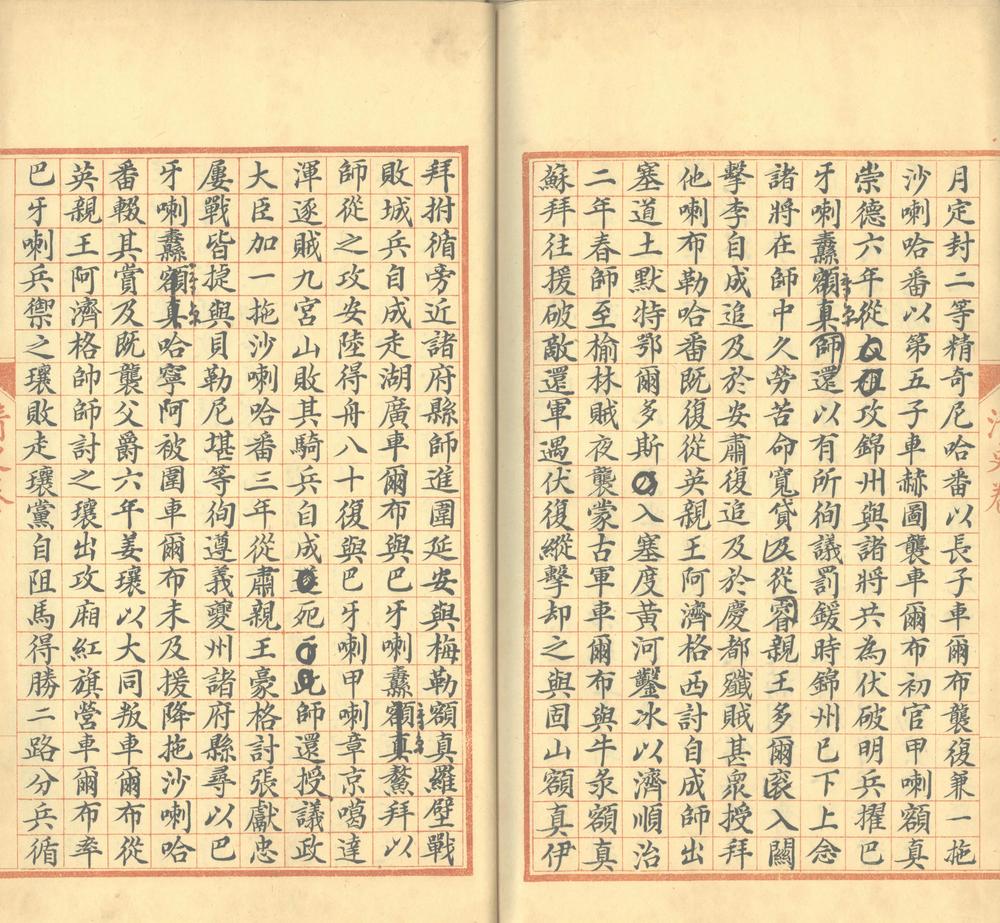 月定封二等精奇尼哈番以長子車爾布襲復兼一拖
沙喇哈番以第五子車赫圖襲車爾布初官甲喇額真
崇德六年從攻錦州與諸將共為伏破明兵擢巴
牙喇纛章京師還以有所徇議罰鍰時錦州已下上念
諸將在師中久勞苦命寬貸及從睿親王多爾袞入關
擊李自成追及於安肅復追及於慶都殲賊甚眾授拜
他喇布勒哈番既復從英親王阿濟格西討自成師出
塞道土默特鄂爾多斯入塞度黃河鑿冰以濟順治
二年春師至榆林賊夜襲蒙古軍車爾布與牛彔額真
蘇拜往援破敵還軍遇伏復縱擊却之與固山額真伊
拜拊循旁近諸府縣師進圍延安與梅勒額真羅壁戰
敗城兵自成走湖廣車爾布與巴牙喇纛章京鰲拜以
師從之攻安陸得舟八十復與巴牙喇甲喇章京噶達
渾逐賊九宮山敗其騎兵自成死師還授議政
大臣加一拖沙喇哈番三年從肅親王豪格討張獻忠
屢戰皆捷與貝勒尼堪等徇遵義夔州諸府縣尋以巴
牙喇纛章京哈寧阿被圍車爾布未及援降拖沙喇哈
番輟其賞及既襲父爵六年姜瓖以大同叛車爾布從
英親王阿濟格帥師討之瓖出攻廂紅旗營車爾布率
巴牙喇兵禦之瓖敗走瓖黨自阻馬得勝二路分兵循